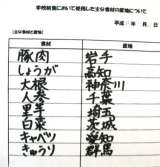 学校給食において使用した主な食材の産地について
平成 年 月 日
食材 産地
豚肉 岩手
しょうが 高知
大根 神奈川
人参 千葉
里芋 埼玉
白菜 茨城
キャベツ 愛知
きゅうり 群馬